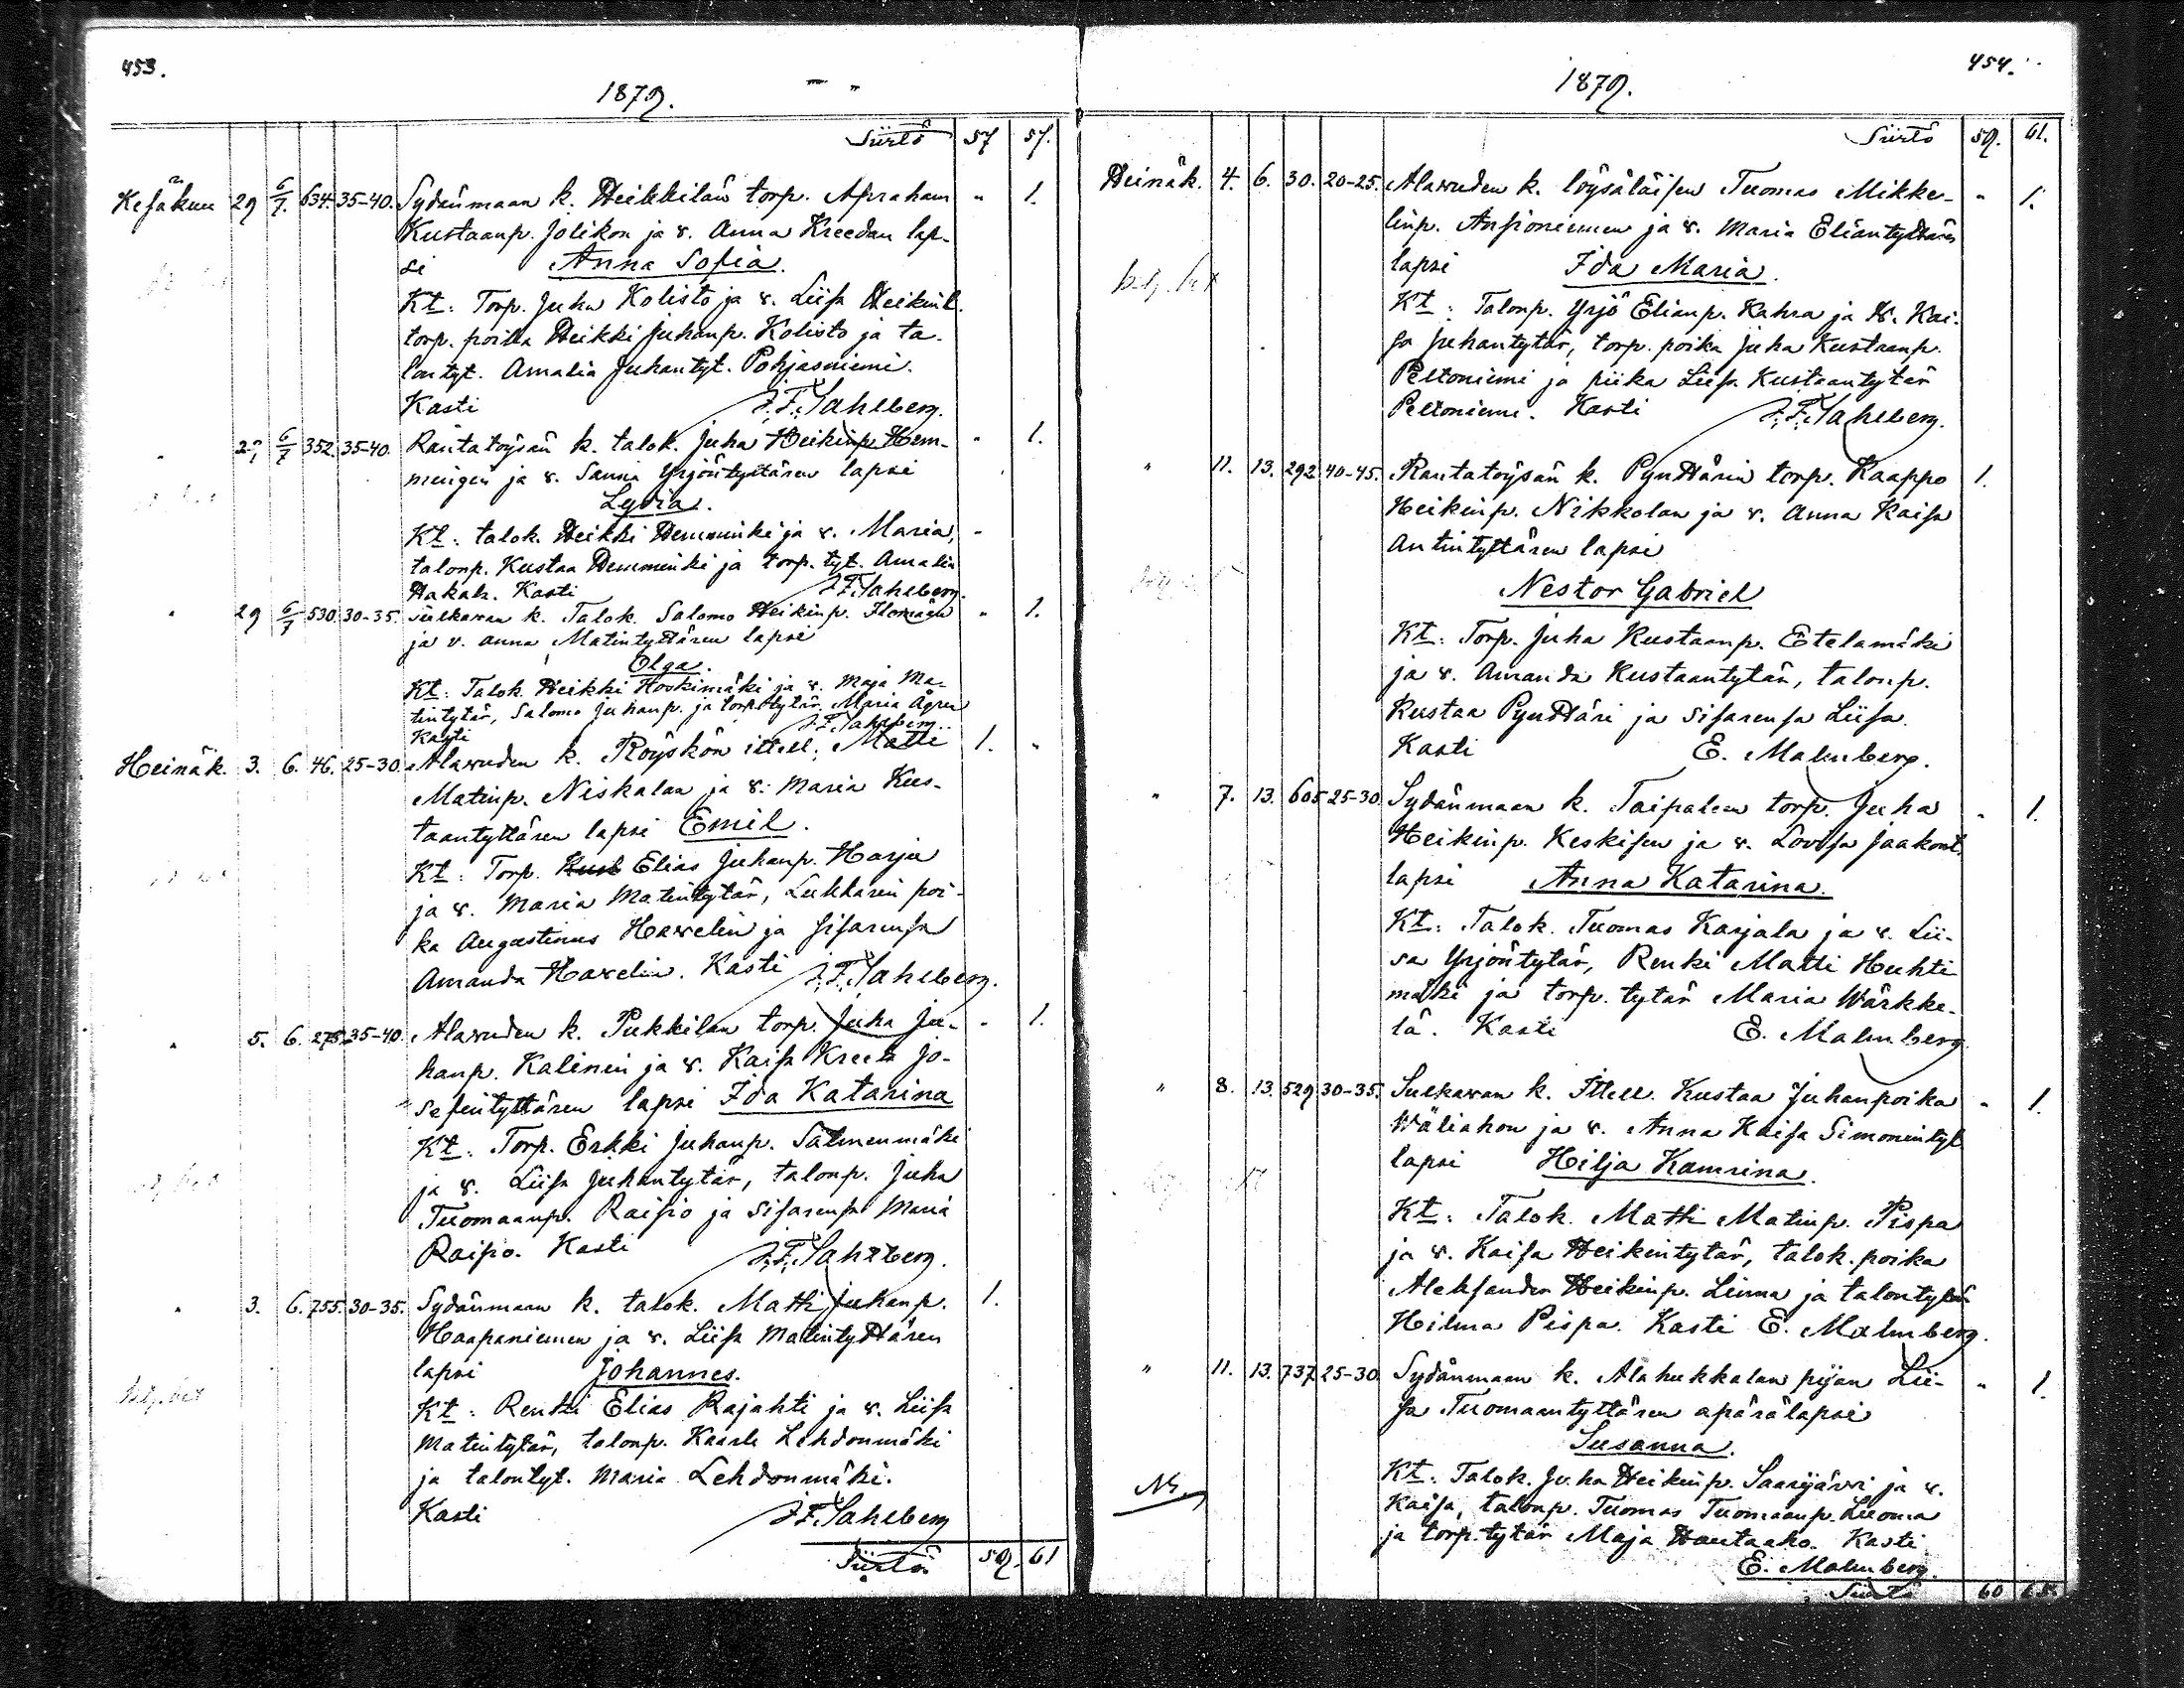 453.
1879.
Siirto 57 57.
Kesäkuu 29 6/7. 634. 35-40. Sydänmaan k. Heikkilän torp. Apraham " 1.
Kustaanp. Jolikon ja v. Anna Kreedan lap-
si Anna Sofia.
Kt: Torp. Juha Kolisto ja v. Liisa Heikint.
torp. poika Heikki Juhanp. Kolisto ja ta-
lontyt. Amalia Juhantyt. Pohjasniemi.
Kasti J. F. Sahlberg.
" 6/7 352. 35-40. Rantatöysän k. talok. Juha Heikinp. Hem- " 1.
mingin ja v. Sanna Yrjöntyttären lapsi
Lydia.
Kt: talok. Heikki Hemminki ja v. Maria,
talonp. Kustaa Hemminki ja torp. tyt. Amalia
Hakala. Kasti J. F. Sahlberg.
" 29 6/7 530. 30-35. Sulkavan k. Talok. Salomo Heikinp. " 1.
ja v. Anna Matintyttären lapsi
Olga.
Kt: Talok. Heikki Koskimäki ja v. Maja Ma-
tintytär, Salomo Juhanp. ja torp. tytär Maria Ågren
Kasti J. F. Sahlberg.
Heinäk. 3. 6. 46. 25-30. Alavuden k. Röyskön ittell. Matti 1. "
Matinp. Niskalan ja v. Maria Kus-
taantyttären lapsi Emil.
Kt: Torp. Elias Juhanp. Harju
ja v. Maria Matintytär, Lukkarin poi-
ka Augustinus Havelin ja sisarensa
Amanda Havelin. Kasti J. F. Sahlberg.
" 5. 6. 275. 35-40. Alavuden k. Pukkilan torp. Juha Ju- " 1.
hanp. Kalinin ja v. Kaisa Kreeta Jo-
sefintyttären lapsi Ida Katarina
Kt: Torp. Erkki Juhanp. Salmenmäki
ja v. Liisa Juhantytär, talonp. Juha
Tuomaanp. Raisio ja sisarensa Maria
Raisio. Kasti J. F. Sahlberg.
" 3. 6. 755. 30-35. Sydänmaan k. talok. Matti Juhanp. 1.
Haapaniemen ja v. Liisa Matintyttären
lapsi Johannes.
Kt: Renki Elias Rajahti ja v. Liisa
Matintytär, talonp. Kaarle Lehdonmäki
ja talontyt. Maria Lehdonmäki.
Kasti J. F. Sahlberg
Siirto 59. 61
454.
1879.
Siirto 59. 61.
Heinäk. 4. 6. 30. 20-25. Alavuden k. löysäläisen Tuomas Mikke- " 1.
linp. Ansioniemen ja v. Maria Eliäntyttären
lapsi Ida Maria.
Kt: Talonp. Yrjö Elianp. Kahra ja v. Kai-
sa Juhantytär, torp. poika Juha Kustaanp.
Peltoniemi ja piika Liisa Kustaantytär
Peltoniemi. Kasti J. F. Sahlberg.
" 11. 13. 292. 40-45. Rantatöysän k. Pynttärin torp. Kaappo 1.
Heikinp. Nikkolan ja v. Anna Kaisa
Antintyttären lapsi
Nestor Gabriel
Kt: Torp. Juha Kustaanp. Etelamäki
ja v. Amanda Kustaantytär, talonp.
Kustaa Pynttäri ja sisarensa Liisa.
Kasti E. Malmberg.
" 7. 13. 605 25-30 Sydänmaan k. Taipaleen torp. Juha " 1.
Heikinp. Keskisen ja v. Lovisa Jaakont.
lapsi Anna Katarina.
Kt: Talok. Tuomas Karjala ja v. Lii-
sa Yrjöntytär, Renki Matti Huhti-
mäki ja torp. tytär Maria Wärkke-
lä. Kasti E. Malmberg.
" 8. 13. 529 30-35. Sulkavan k. Ittell. Kustaa Juhanpoika " 1.
Wäliahon ja v. Anna Kaisa Simonintyt
lapsi Hilja Kamrina.
Kt: Talok. Matti Matinp. Pispa
ja v. Kaisa Heikintytär, talok. poika
Aleksander Heikinp. Linna ja talontytär
Hilma Pispa. Kasti E. Malmberg.
" 11. 13. 737 25-30. Sydänmaan k. Alahukkalan pijan Lii- " 1.
sa Tuomaantyttären apärälapsi
Susanna.
Kt: Talok. Juha Heikinp. Saarijärvi ja v.
Kaisa, talonp. Tuomas Tuomaanp. Luoma
ja torp. tytär Maja Hautaaho. Kasti
E. Malmberg.
Siirto 60